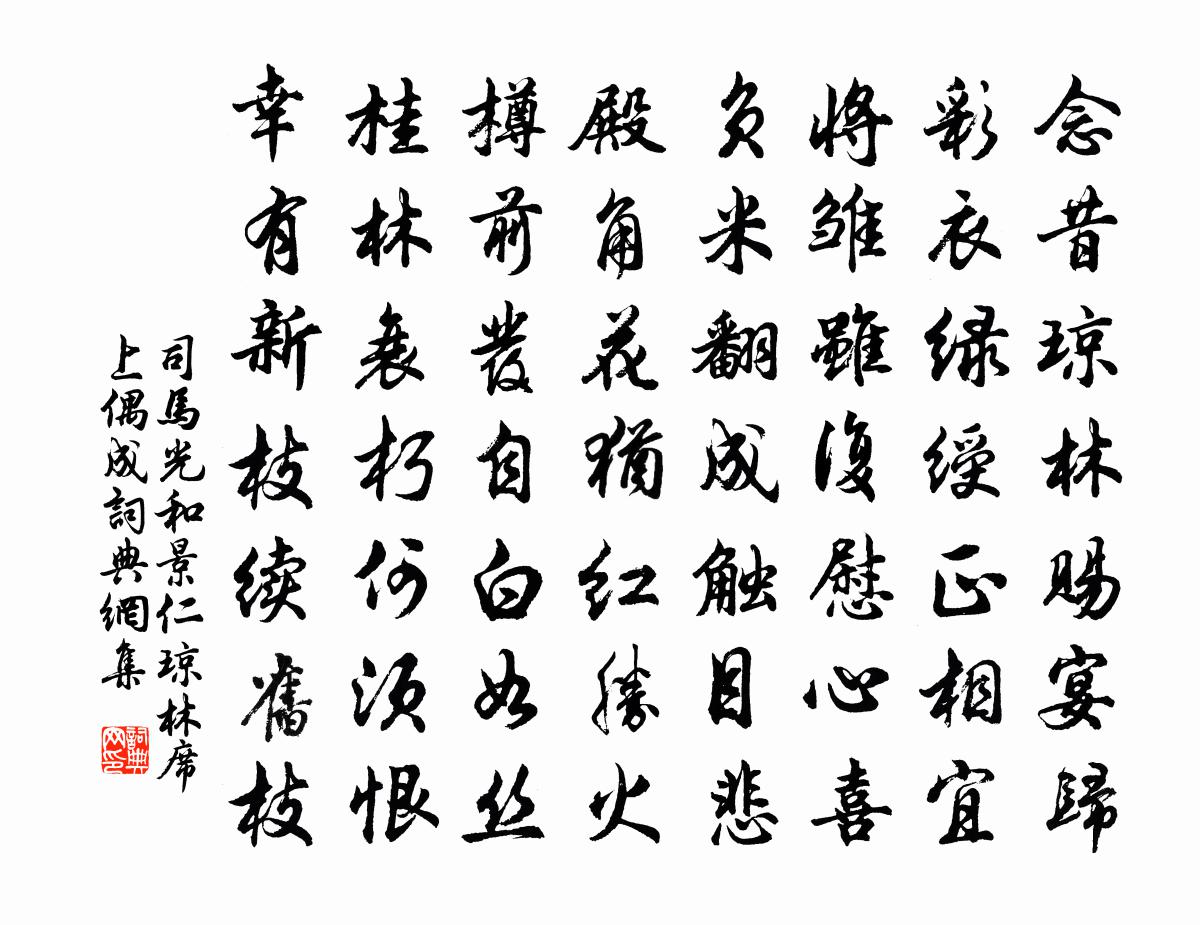 念昔琼林赐宴归
彩衣绿绶正相宜
将雏虽复慰心喜
负米翻成触目悲
殿角花猶红勝火
樽前發自白如丝
桂林衰朽何须恨
幸有新枝续舊枝
司馬光和景仁琼林席
上偶成詞典網集
詞典
网印